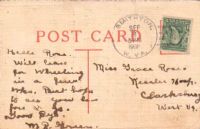 SMITHTON
SEP
W. VA.
POST CARD
Hello Rose
Will leave
for Wheeling
in a few
wks. But hope
to see you be
fore I go.
Good Bye.
Miss Grace Rose
Kessler Hosp,
Clarksburg
West Va.